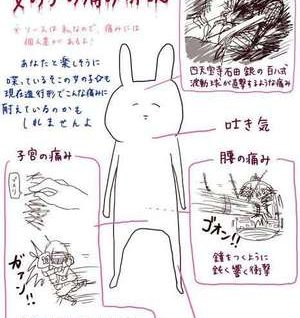 ※ソースは私なので、痛みには
個人差があるよ!
あなたと楽しそうに
喋っているそこの女の子も
現在進行形でこんな痛みに
耐えているのかも
しれませんよ
四天宝寺石田銀の百八式
波動球が直撃するような痛み
吐き気
子宮の痛み
腰の痛み
ゴオン!!
ガァン!!
鐘をつくように
鈍く響く衝撃